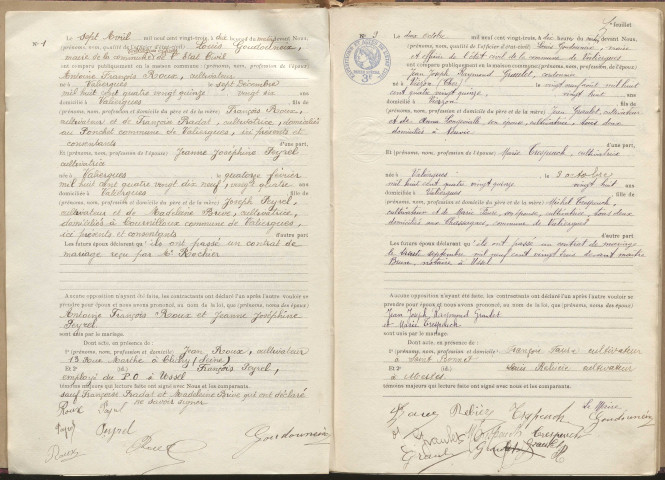 Le sept Avril mil neuf cent vingt-trois, à dix heures du matin devant Nous
(prénoms, nom, qualité de l'officier d'état-civil) Louis Goudounèix
maire de la commune de Valiergues et de l'Etat Civil
ont comparu publiquement en la maison commune (prénoms, nom, profession de l'époux)
Antoine François Roux, cultivateur
né à Valiergues le sept Décembre
mil huit cent quatre vingt quinze, vingt six ans
domicilié à Valiergues fils de
(prénoms, nom, profession et domicile du père et de la mère) François Roux,
cultivateur et de François Pradat, cultivatrice, domiciliés
au Ponchat commune de Valiergues, ici présents et
consentants d'une part.
Et (prénoms, nom, profession de l'épouse) Jeanne Joséphine Peyrel
cultivatrice
née à Valiergues le quatorze février
mil huit cent quatre vingt dix neuf, vingt quatre ans
domiciliée à Valiergues fille de
(prénoms, nom, profession et domicile du père et de la mère) Joseph Peyrel,
cultivateur et de Madeleine Brive, cultivatrice,
domiciliés à commune de Valiergues,
ici présents et consentants d'autre part.
Les futurs époux déclarent qu'ils ont passé un contrat de
mariage reçu par Me Rochier
Aucune opposition n'ayant été faite, les contractants ont déclaré l'un après l'autre vouloir se
prendre pour époux et nous avons prononcé, au nom de la loi, que (prénoms, nom des époux)
Antoine François Roux et Jeanne Joséphine
Peyrel
sont unis par le mariage.
Dont acte, en présence de
1º (prénoms, nom, profession et domicile) Jean Roux, cultivateur
13 Rue Marthe à Clichy (Seine)
Et 2º (id.) François Peyrel,
employé du P.O à Ussel
témoins majeurs qui lecture faite ont signé avec Nous et les comparants.
sauf François Pradat et Madeleine Brive qui ont déclaré
ne savoir signer
Roux Peyrel
Peyrel Peyrel
Roux Roux Goudounèix
feuillet
Nº 3
Le octobre mil neuf cent vingt-trois, à dix heures du matin devant Nous
(prénoms, nom, qualité de l'officier d'état-civil) Louis Goudounèix, maire
et officier de l'état civil de la commune de Valiergues
ont comparu publiquement en la maison commune (prénoms, nom, profession de l'époux)
Jean Joseph Raymond Graulet,
né à Vierzon (Cher) le mil huit
cent quatre vingt quinze, vingt huit ans
domicilié à Vierzon fils de
(prénoms, nom, profession et domicile du père et de la mère) Jean Graulet, cultivateur
et de son épouse, cultivatrice, tous deux
domiciliés à
d'une part.
Et (prénoms, nom, profession de l'épouse) Marie Crespuch, cultivatrice
née à Valiergues le 3 octobre
mil huit cent quatre vingt quinze vingt huit ans
domiciliée à Valiergues fille de
(prénoms, nom, profession et domicile du père et de la mère) Michel Crespuch,
cultivateur et de Marie son épouse, cultivatrice, tous deux
domiciliés aux commune de Valiergues
d'autre part.
Les futurs époux déclarent qu'ils ont passé un contrat de mariage
le septembre mil neuf cent vingt trois devant maître
notaire à Ussel
Aucune opposition n'ayant été faite, les contractants ont déclaré l'un après l'autre vouloir se
prendre pour époux et nous avons prononcé, au nom de la loi, que (prénoms, nom des époux)
Jean Joseph Raymond Graulet
et Marie Crespuch
sont unis par le mariage.
Dont acte, en présence de
1º (prénoms, nom, profession et domicile) François Faure cultivateur
à Saint
Et 2º (id.) Louis cultivateur
à
témoins majeurs qui lecture faite ont signé avec Nous et les comparants.
Faure Crespuch Le Maire
Goudounèix
Graulet Crespuch
Graulet Graulet